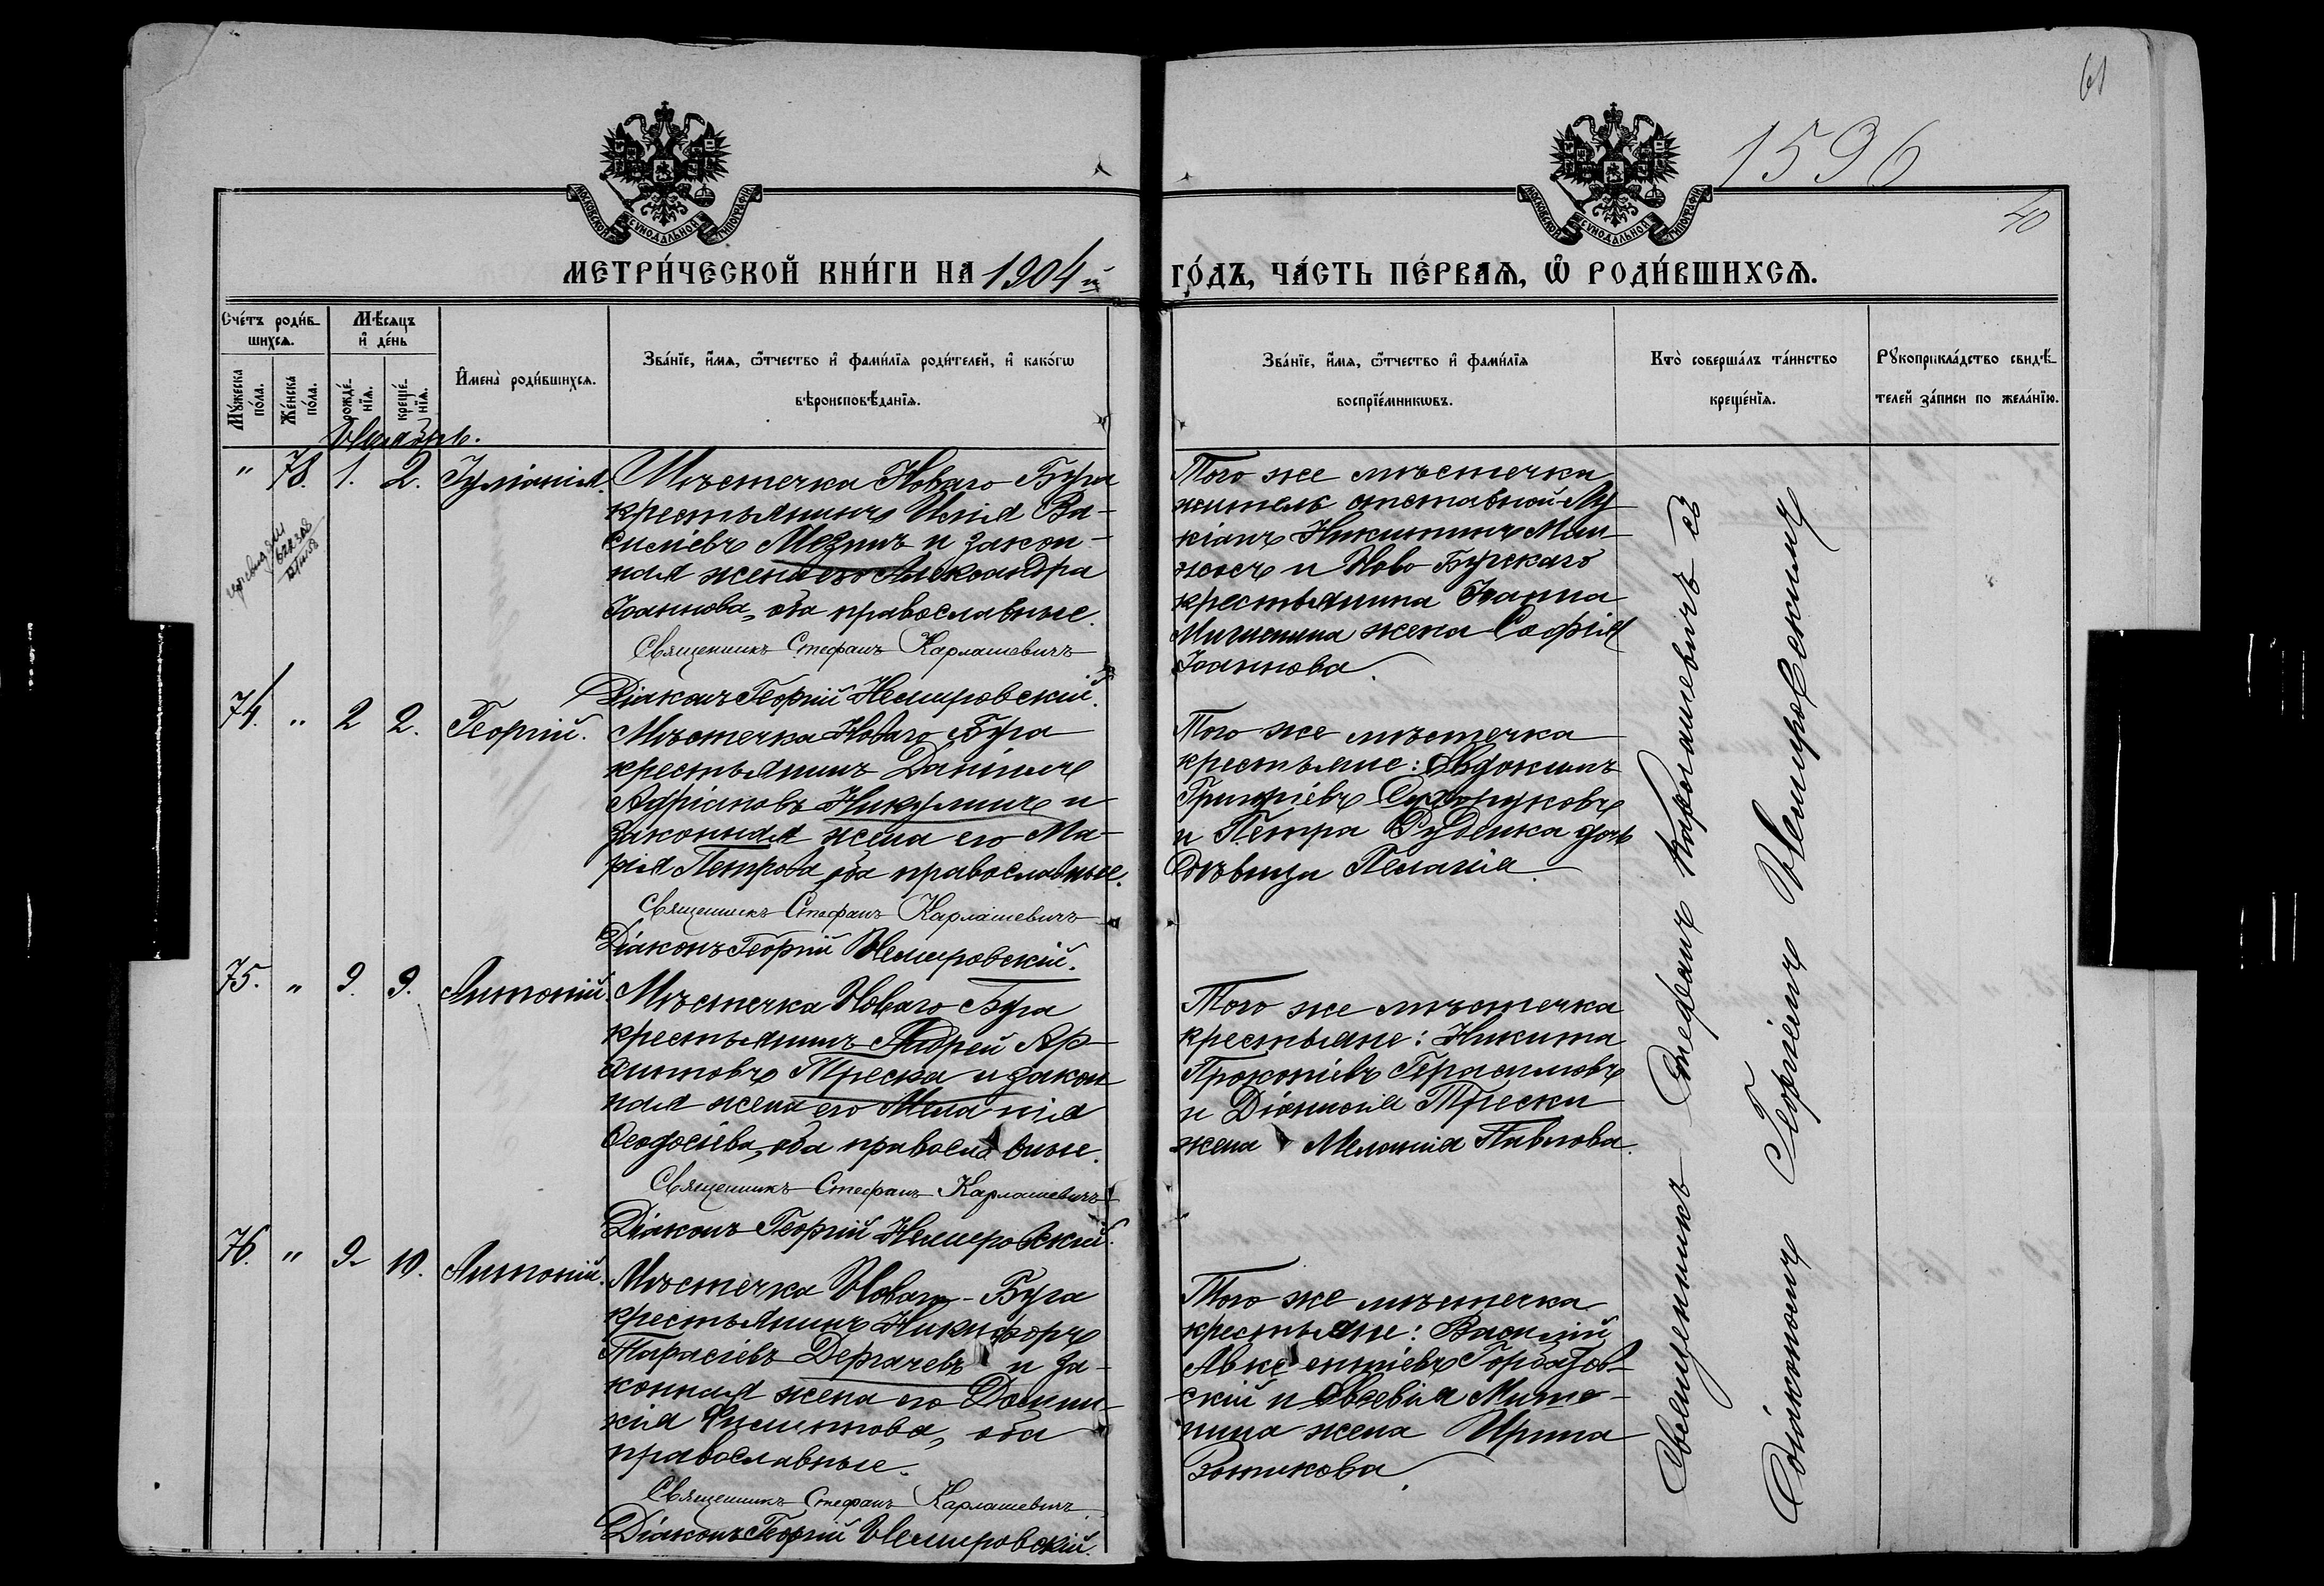 61
1596
40
МОСКОВСКОЙ СУНОДАЛЬНОЙ ТИПОГРАФІИ
МОСКОВСКОЙ СУНОДАЛЬНОЙ ТИПОГРАФІИ
МЕТРИ́ЧЕСКОЙ КНИ́ГИ НА 1904 й
ГО́ДЪ, ЧА́СТЬ ПЕ́РВАЯ, Ѡ РОДИ́ВШИХСЯ.
Сче́тъ роди́в-
шихся.
Му́жеска по́ла.
Же́нска по́ла.
Мѣ́сяцъ и де́нь
рожде́нїя.
креще́нїя.
Имена̀ роди́вшихся.
Зва́нїе, и́мя, ѻ́тчество и фами́лїя роди́телей, и како́гѡ
вѣроисповѣ́данїя.
Зва́нїе, и́мя, ѻ́тчество и фами́лїя
воспрїе́мникѡвъ.
Кто̀ соверша́лъ та́инство
креще́нїя.
Рꙋкоприкла́дство свидѣ́-
телей за́писи по жела́нїю.
" 78. 1. 2. Іуліанія.
Мѣстечка Новаго Буга
крестьянинъ Илія Ва-
силіевъ Мезинъ и закон-
ная жена его Александра
Іоаннова, оба православные.
Священникъ Стефанъ Карлашевичъ
Діаконъ Георгій Немировскій.
Того же мѣстечка
житель отставной Лу
кіанъ Никитинъ
и Ново-Бугскаго
крестьянина Іоанна
жена Софія
Іоаннова.
74. " 2 2. Георгій.
Мѣстечка Новаго Буга
крестьянинъ Даніилъ
Адріановъ Никулинъ и
законная жена его Ма-
рія Петрова, оба православные.
Священникъ Стефанъ Карлашевичъ
Діаконъ Георгій Немировскій.
Того же мѣстечка
крестьяне: Евдокимъ
Григоріевъ Сухоруковъ
и Петра Руденка дочь
дѣвица Пелагія.
75. " 9. 9. Антоній.
Мѣстечка Новаго Буга
крестьянинъ Андрей Ар-
Треска и закон
ная жена его Мелания
Ѳеодосіева, оба православные.
Священникъ Стефанъ Карлашевичъ
Діаконъ Георгій Немировскій.
Того же мѣстечка
крестьяне: Никита
Прокопіевъ Герасимовъ
и Діонисія Трески
жена Меланія Павлова.
76. " 9. 10. Антоній.
Мѣстечка Новаго-Буга
крестьянинъ Никифоръ
Тарасіевъ Дергачевъ и за-
конная жена его Домни-
кія Филиппова, оба
православные.
Священникъ Стефанъ Карлашевичъ
Діаконъ Георгій Немировскій.
Того же мѣстечка
крестьяне: Василій
Авксентіевъ Горбазов-
скій и Евсевія Мите-
нина жена Ирина
Зотикова.
Священникъ Стефанъ Карлашевичъ съ
Діакономъ Георгіемъ Немировскимъ